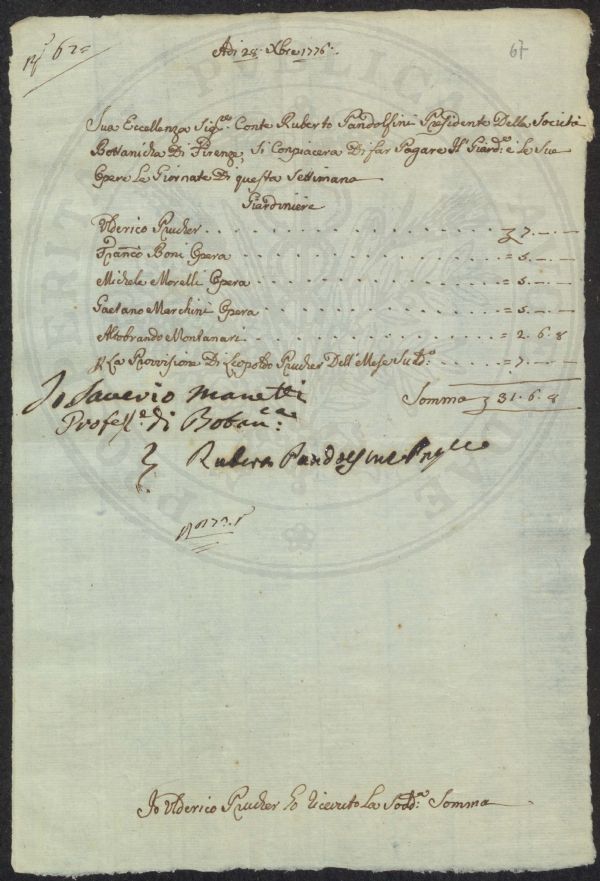 N.° 62=
67
Adi 28. Xbre 1776.
Sua Eccellenza Sig.re Conte Ruberto Pandolfini Presidente Della Società
Bottanicha Di Firenze, Si Conpiacera Di far Pagare Il Giard.e e Le Sue
Opere Le Giornate Di questa Settimana
Giardiniere
Ulderico Prucher . . . . . . . . . . . . . . . 7. — . —
Franc.o Boni Opera . . . . . . . . . . . . . = 5. — . —
Michele Morelli Opera . . . . . . . . . . . . = 5. — . —
Gaetano Marchini Opera . . . . . . . . . . . = 5. — . —
Altobrando Montanari . . . . . . . . . . . . = 2. 6. 8
La Provvisione Di Leopoldo Prucher Dell' Mese Sud.o . . . . = 7. — . —
Somma 31. 6. 8
Io Saverio Manetti
Profess.e di Botan.ca
Ruberto Pandolfini
Io Ulderico Prucher ho Ricevuto La Sodd.a Somma
PUBLICAE